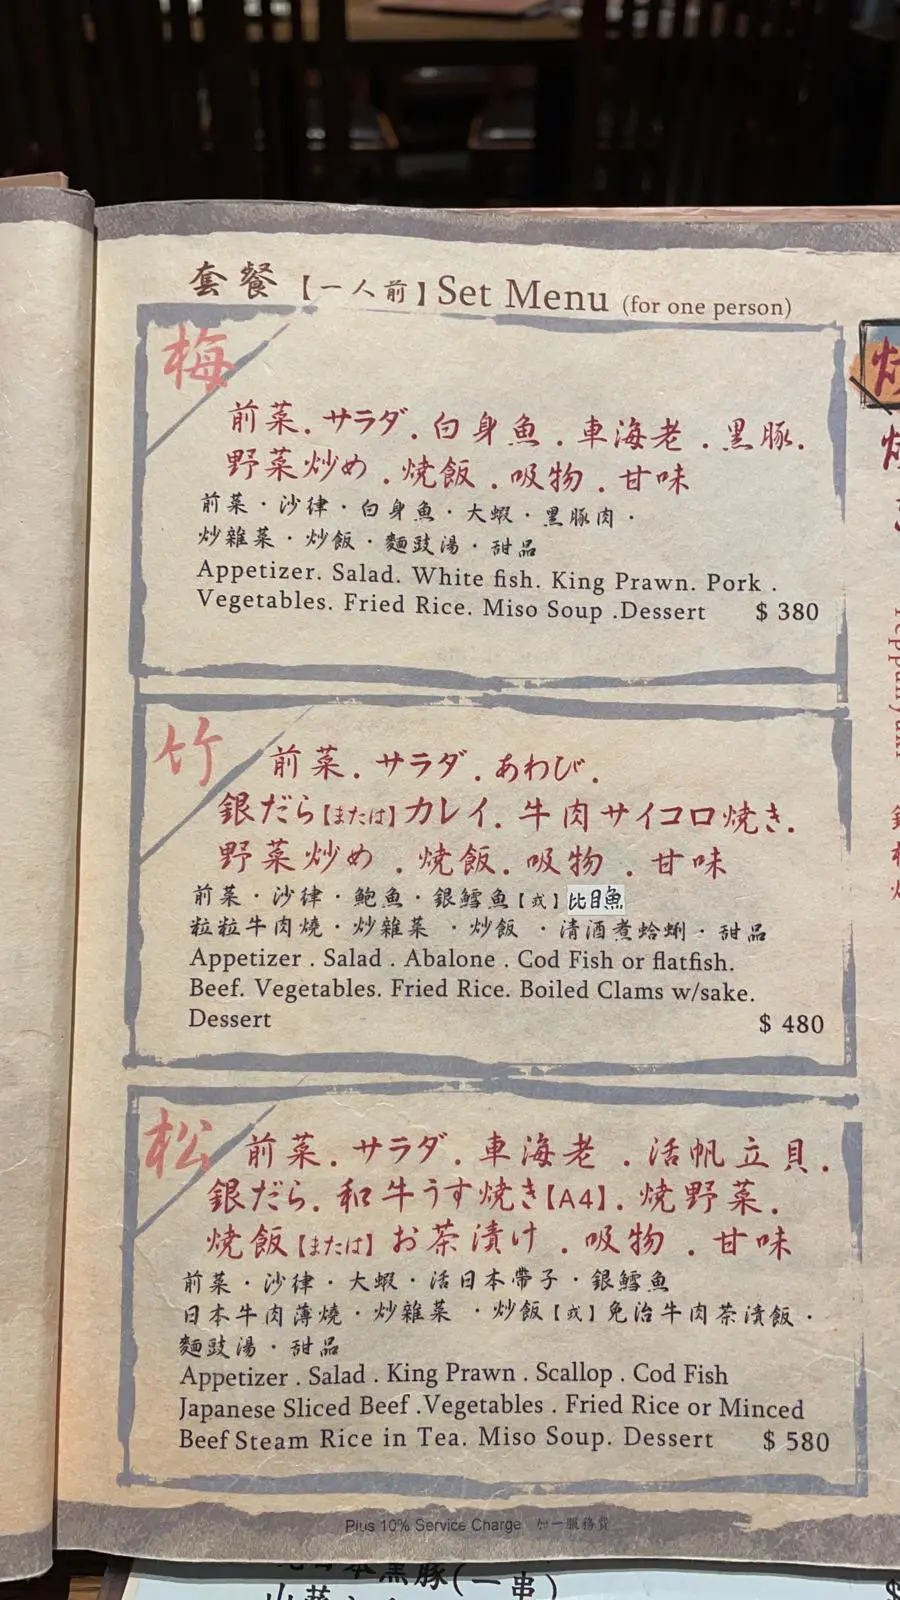 套餐【一人前】Set Menu (for one person)
梅
前菜.サラダ.白身魚.車海老.黒豚.
野菜炒め.焼飯.吸物.甘味
前菜・沙律・白身魚・大蝦・黑豚肉・
炒雜菜・炒飯・麵豉湯・甜品
Appetizer. Salad. White fish. King Prawn. Pork .
Vegetables. Fried Rice. Miso Soup .Dessert $ 380
竹
前菜.サラダ.あわび.
銀だら【または】カレイ.牛肉サイコロ焼き.
野菜炒め.焼飯.吸物.甘味
前菜・沙律・鮑魚・銀鱈魚【或】比目魚
粒粒牛肉燒・炒雜菜・炒飯・清酒煮蛤蜊・甜品
Appetizer . Salad . Abalone . Cod Fish or flatfish.
Beef. Vegetables. Fried Rice. Boiled Clams w/sake.
Dessert $ 480
松
前菜.サラダ.車海老.活帆立貝.
銀だら.和牛うす焼き【A4】.焼野菜.
焼飯【または】お茶漬け.吸物.甘味
前菜・沙律・大蝦・活日本帶子・銀鱈魚
日本牛肉薄燒・炒雜菜・炒飯【或】免治牛肉茶漬飯・
麵豉湯・甜品
Appetizer . Salad . King Prawn . Scallop . Cod Fish
Japanese Sliced Beef .Vegetables . Fried Rice or Minced
Beef Steam Rice in Tea. Miso Soup. Dessert $ 580
Plus 10% Service Charge 加一服務費
黑豚(一串)